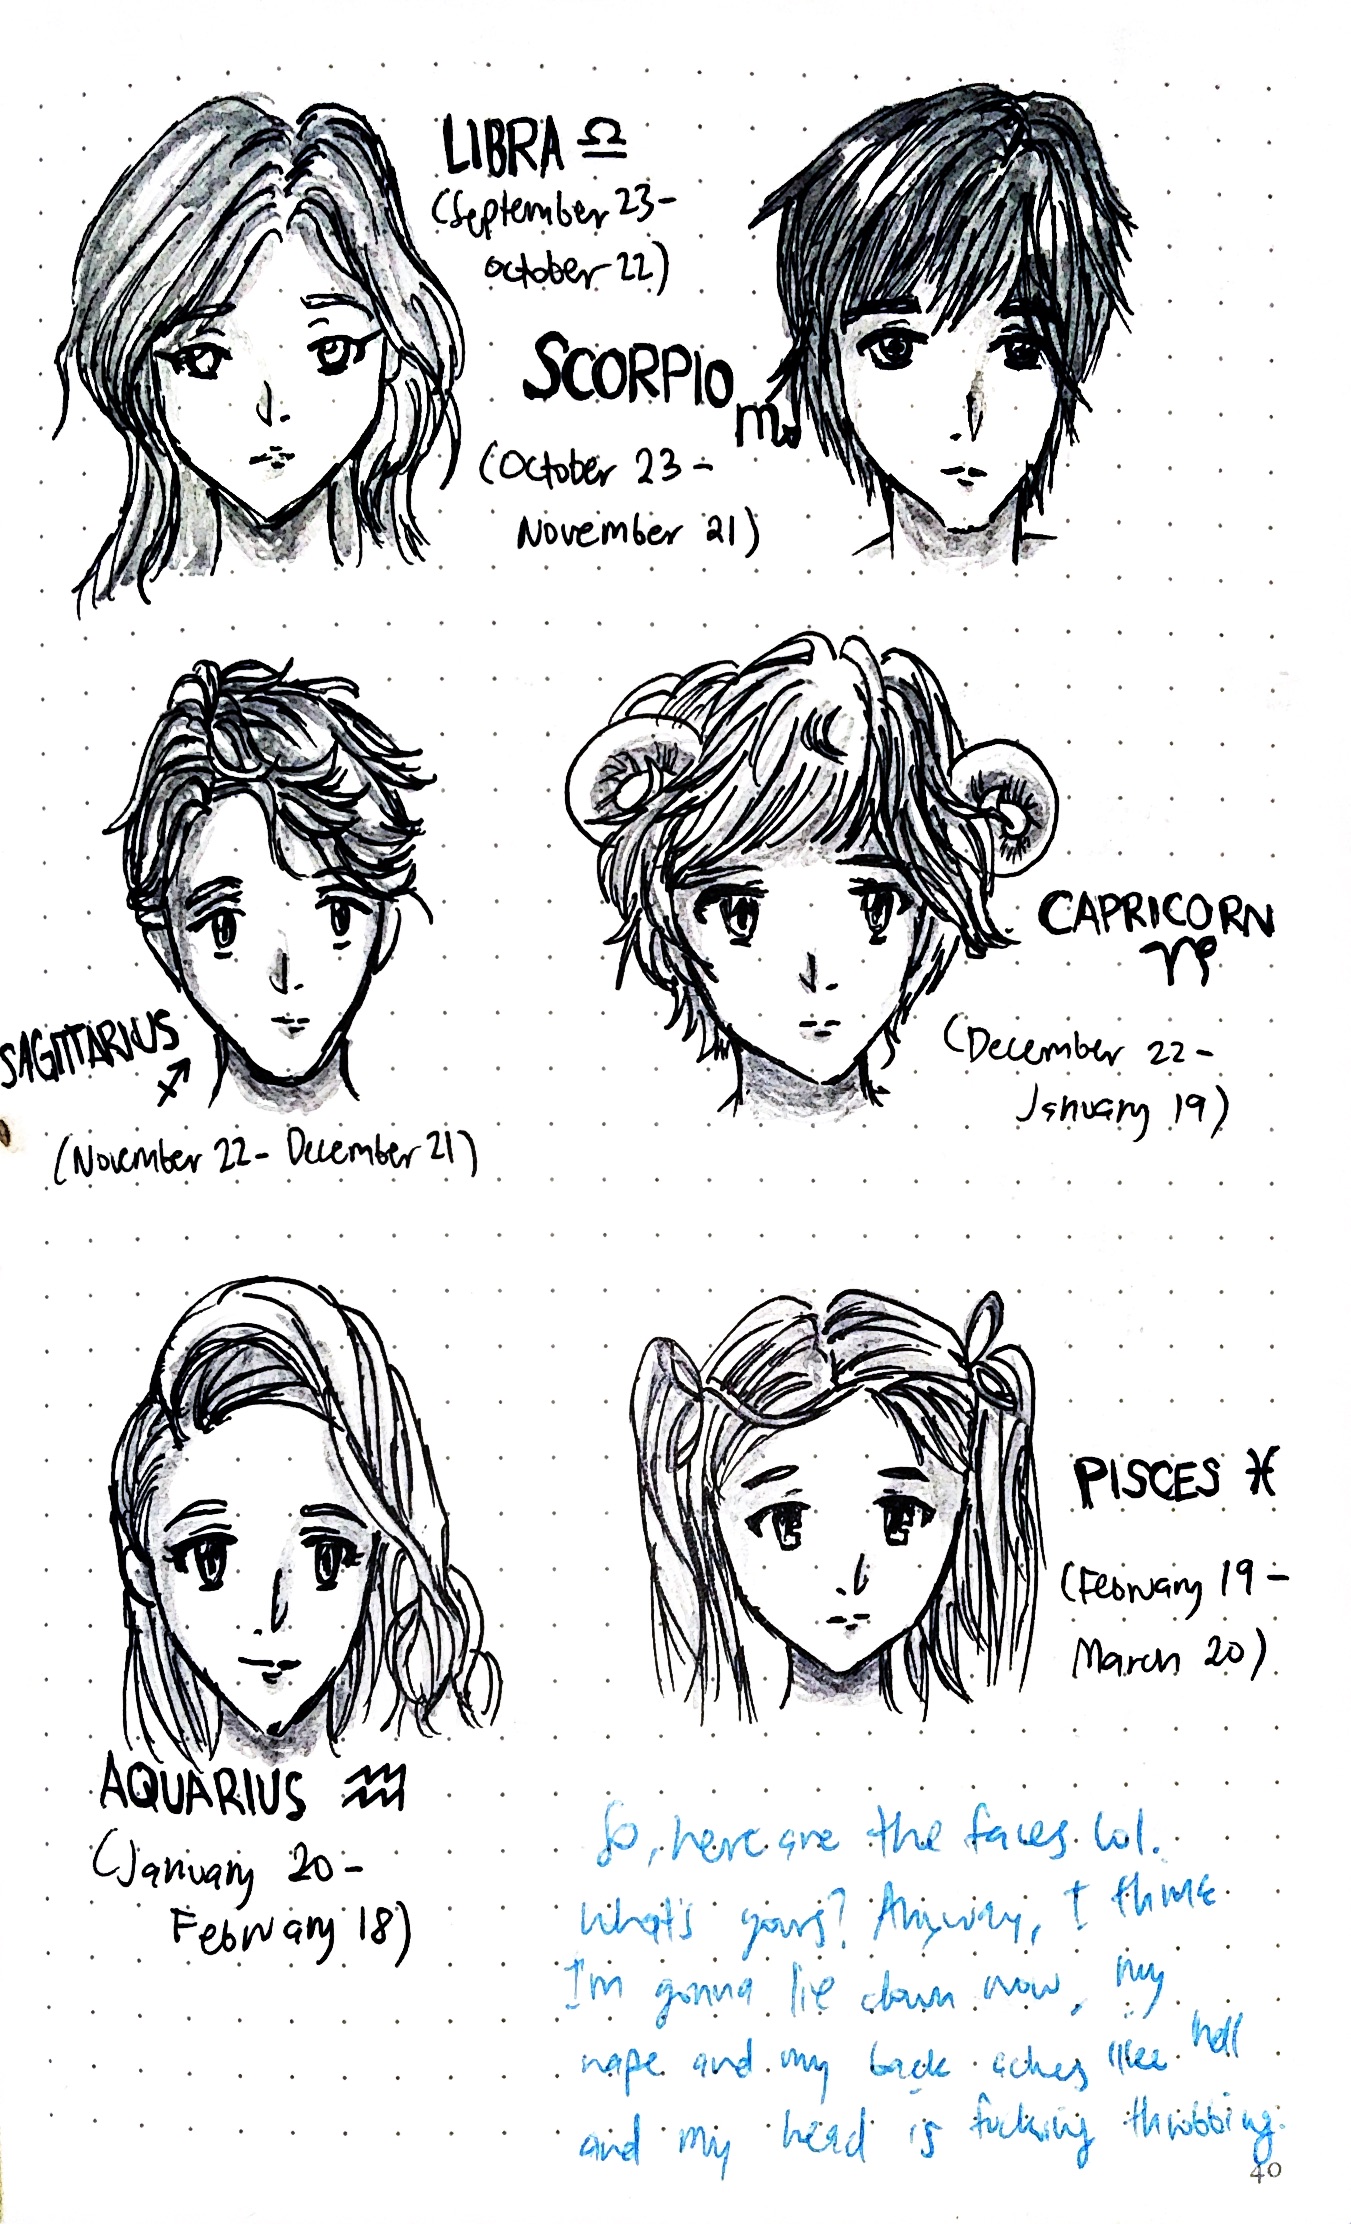 LIBRA ♎
(September 23-
october 22)
SCORPIO ♏
(October 23-
November 21)
SAGITTARIUS
♐
(November 22- December 21)
CAPRICORN
♑
(December 22-
January 19)
AQUARIUS ♒
(January 20-
February 18)
PISCES ♓
(February 19-
March 20)
So, here are the faces lol.
What's yours? Anyway, I think
I'm gonna lie down now, my
nape and my back aches like hell
and my head is fucking throbbing.
40